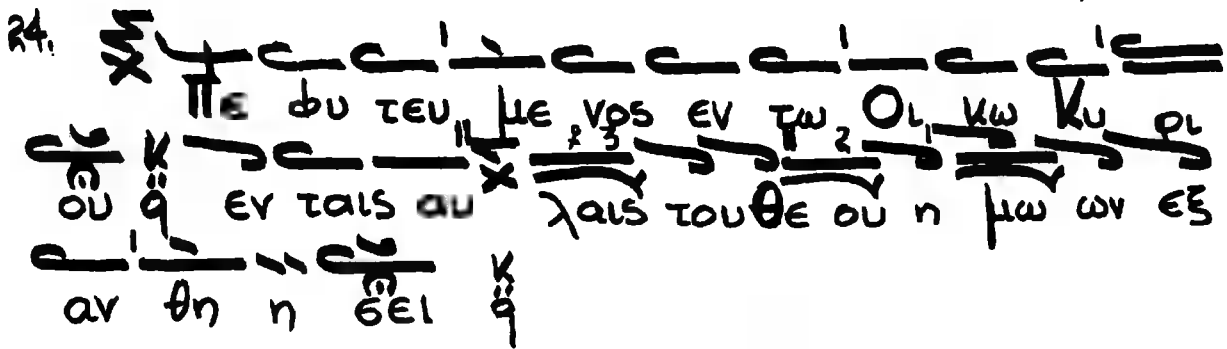 24. Πε φυ τευ με νος εν τω Οι κω Κυ ρι
ου εν ταις αυ λαις του Θε ου η μω ων εξ
αν θη η σει